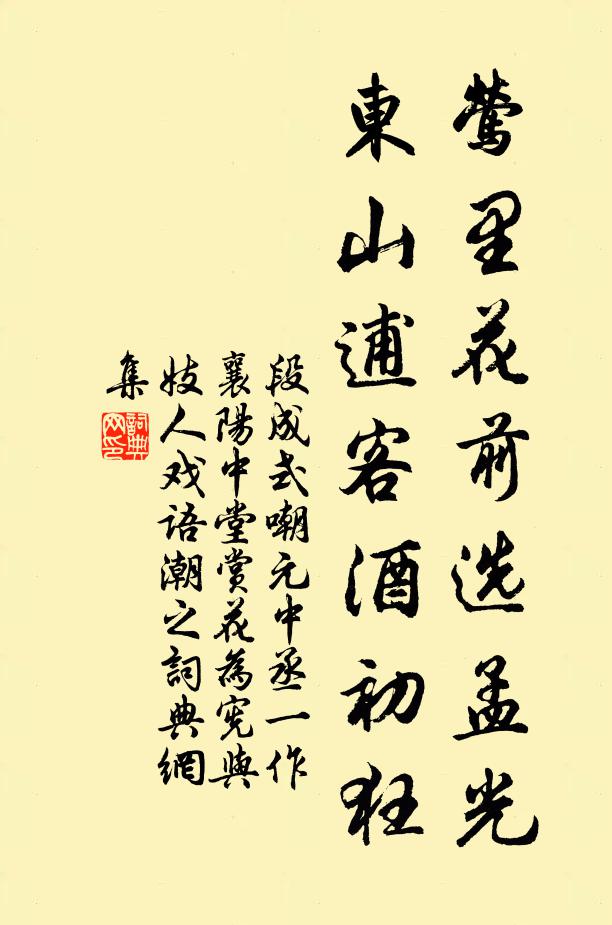 鶯里花前选孟光
東山逋客酒初狂
段成式嘲元中丞一作
襄陽中堂賞花為宪與
妓人戏語潮之詞典網
集
詞典
网印